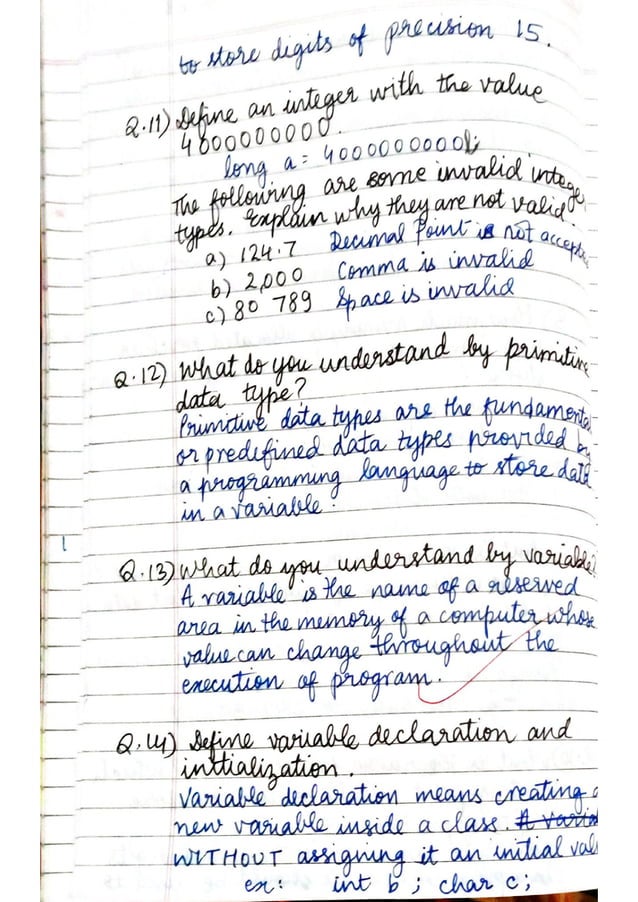 to store digits of precision 15.
Q.11) Define an integer with the value
4000000000.
long a = 4000000000l;
The following are some invalid intege
types. Explain why they are not valid.
a) 124.7 Decimal Point is not accepte
b) 2,000 Comma is invalid
c) 80 789 Space is invalid
Q.12) What do you understand by primitive
data type?
Primitive data types are the fundamenta
or predefined data types provided by
a programming language to store data
in a variable.
Q.13) What do you understand by variable?
A variable is the name of a reserved
area in the memory of a computer whose
value can change throughout the
execution of program.
Q.14) Define variable declaration and
inttialization.
Variable declaration means creating a
new variable inside a class. A variab
WITHOUT assigning it an initial valu
ex: int b ; char c;